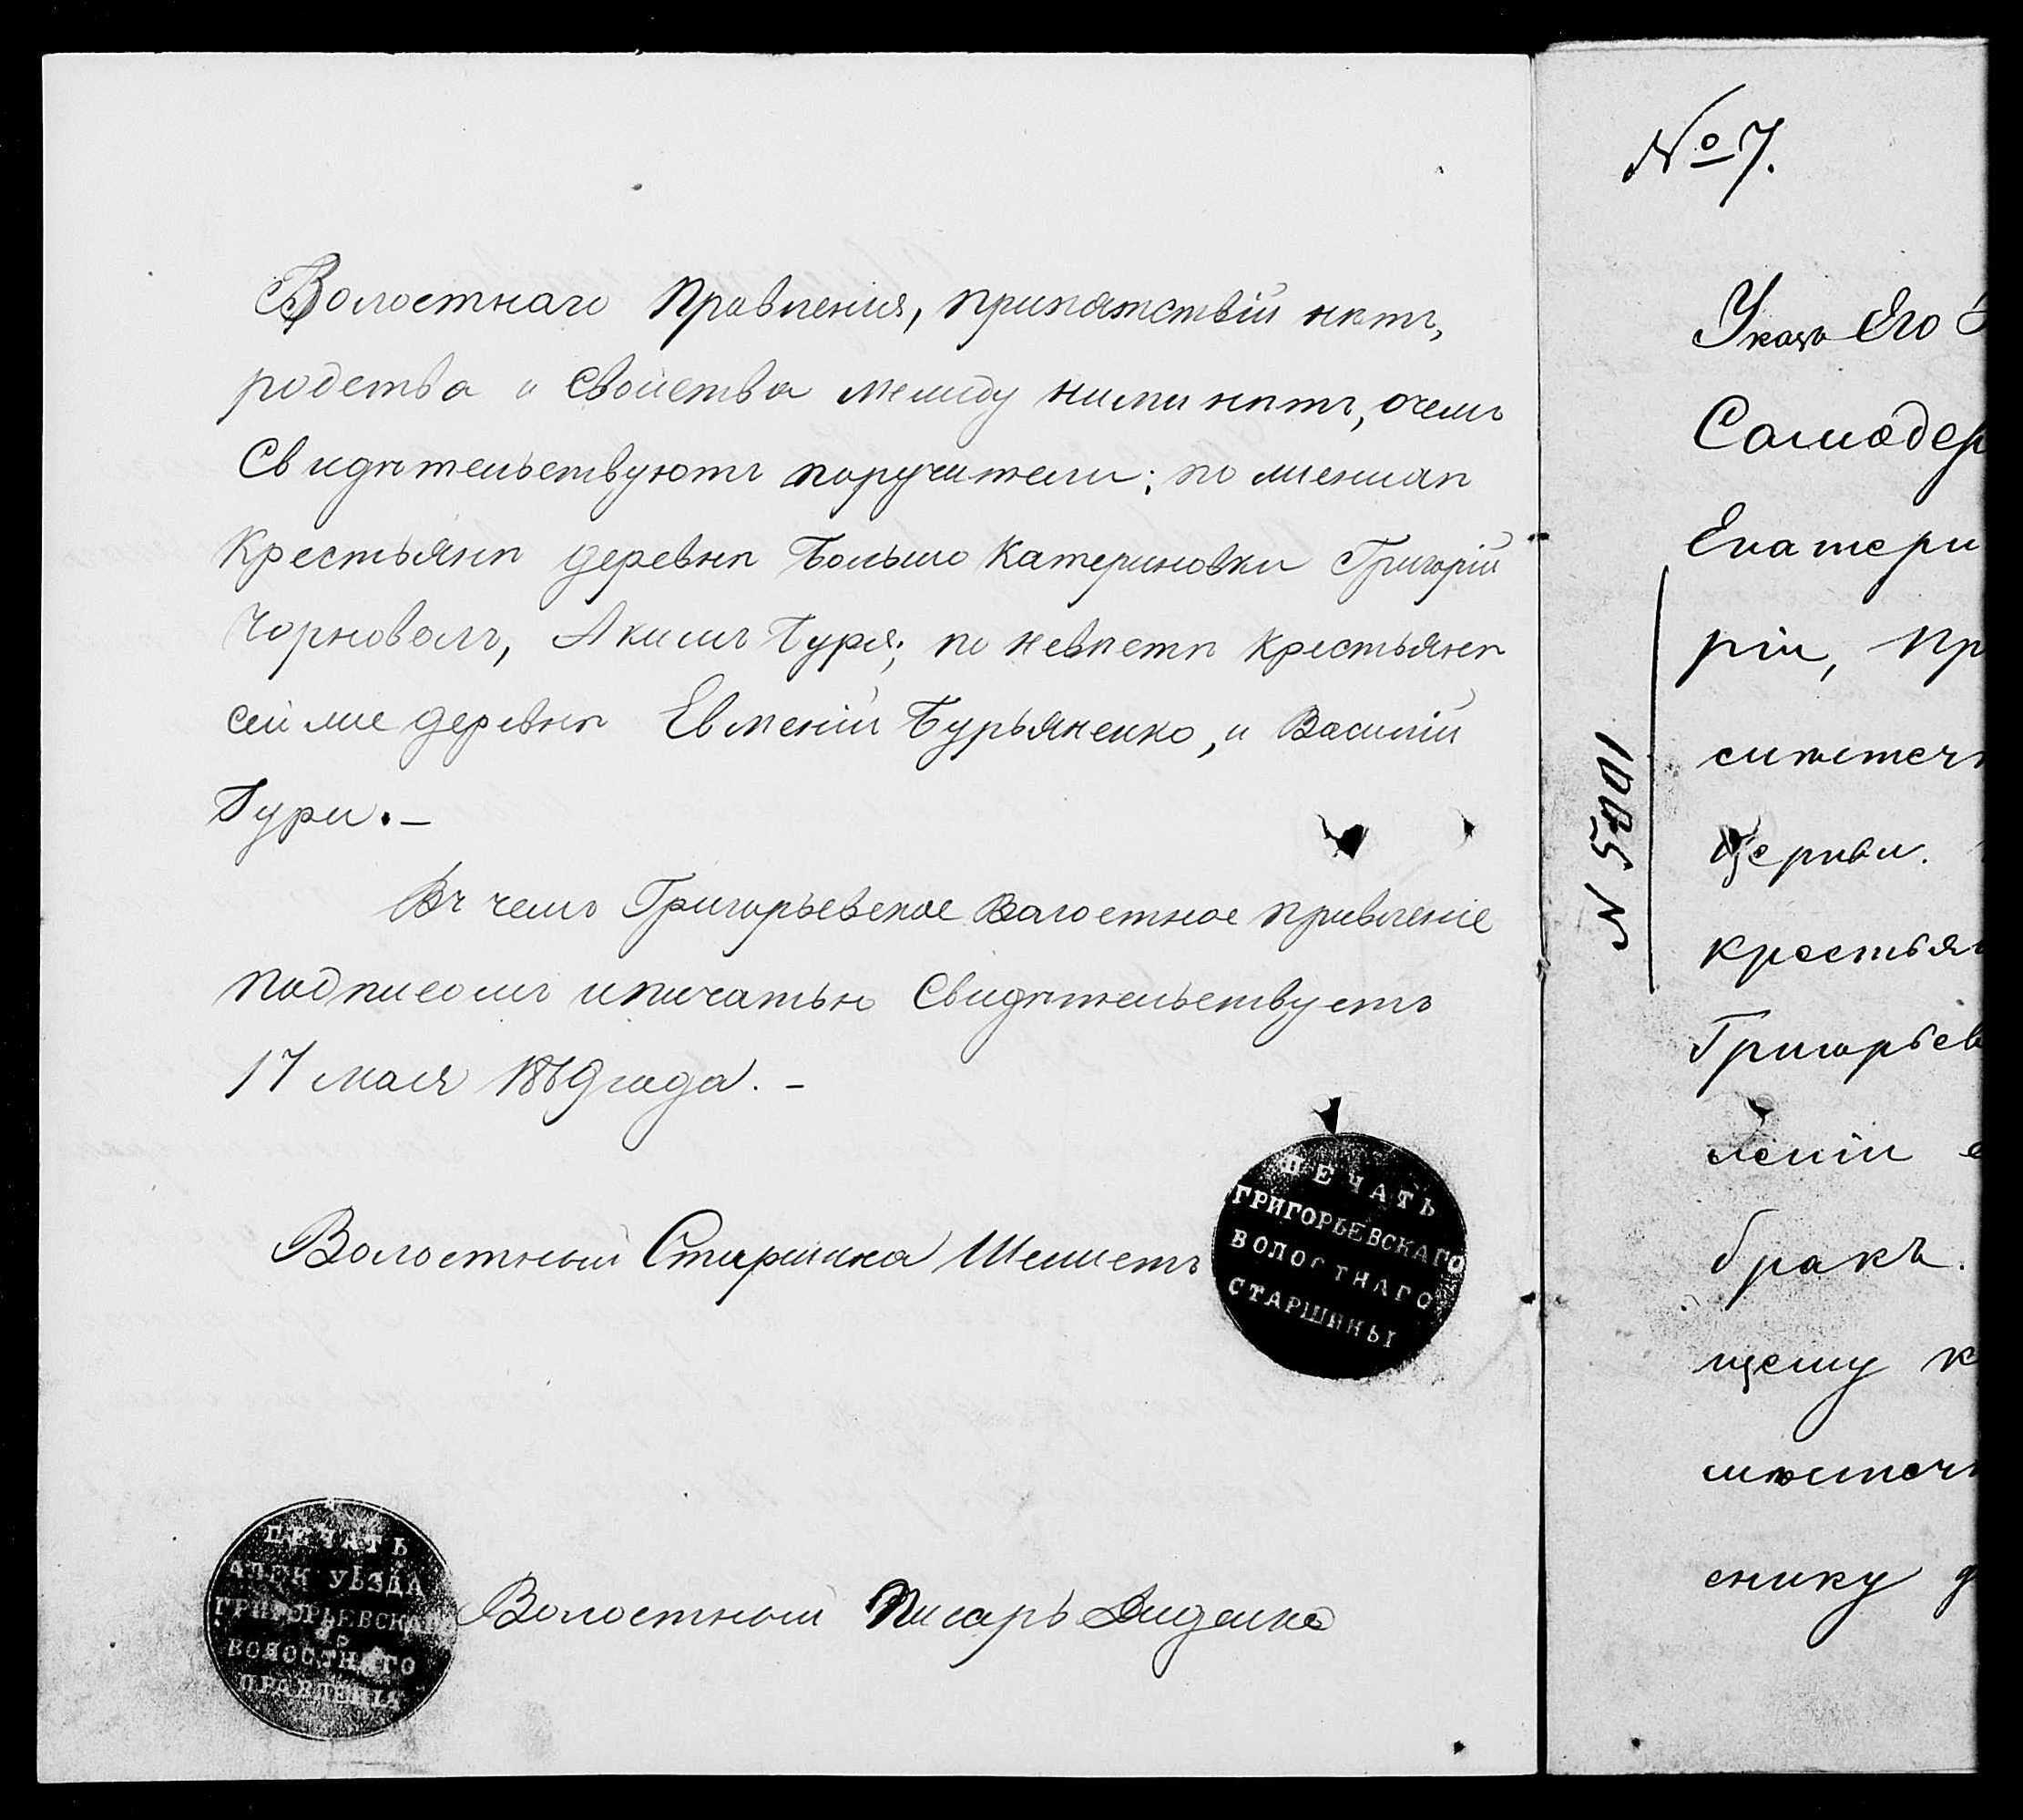 Волостнаго Правленія, припятствій нѣтъ,
родства и свойства между ними нѣтъ, очемъ
Свидѣтельствуютъ поручители: по женихѣ
Крестьянѣ деревнѣ Большо Катериновки Григорій
Чорноволъ, Акимъ Буря; по невѣстѣ крестьянѣ
сей же деревнѣ Евменій Бурьяненко, и Василій
Бури. –
Въ чемъ Григорьевское Волостное правленіе
подписомъ и пичатью Свидѣтельствуетъ
17 мая 1869 года. –
ПЕЧАТЬ
ГРИГОРЬЕВСКАГО
ВОЛОСТНАГО
СТАРШИНЫ
Волостный Старшина Шеметъ
ПЕЧАТЬ
АЛЕК УѢЗДА
ГРИГОРЬЕВСКА
ГО
ВОЛОСТНАГО
ПРАВЛЕНІЯ
Волостный Писарь Диденко
№ 7.
Указъ Его
Самодер
Екатери
ріи, пр
N 5001
мѣстеч
Церкви.
крестьян
Григорьев
леніи
бракъ.
щему к
мѣстеч
снику д